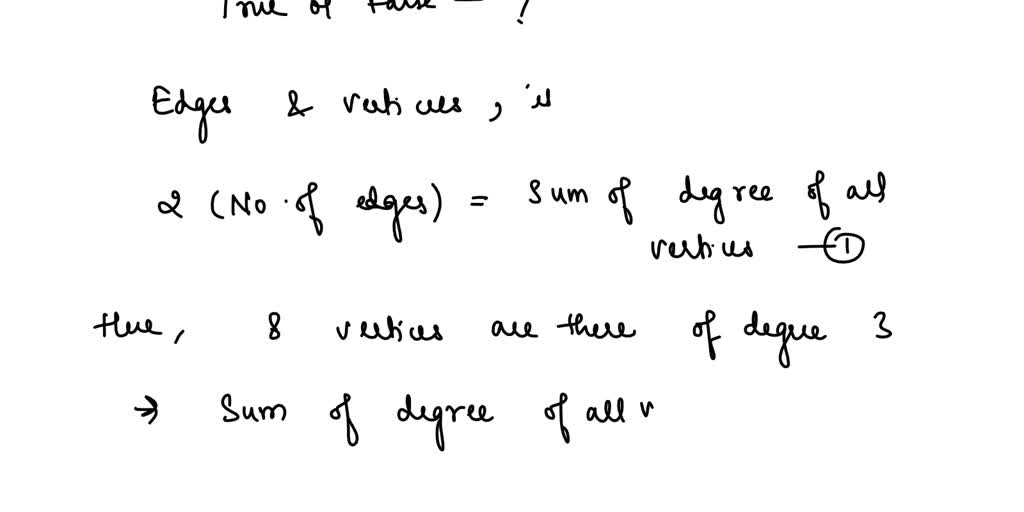 True or False — ?
Edges & vertices, is
2 (No. of edges) = Sum of degree of all
vertices — ①
Here, 8 vertices are there of degree 3
→ Sum of degree of all v